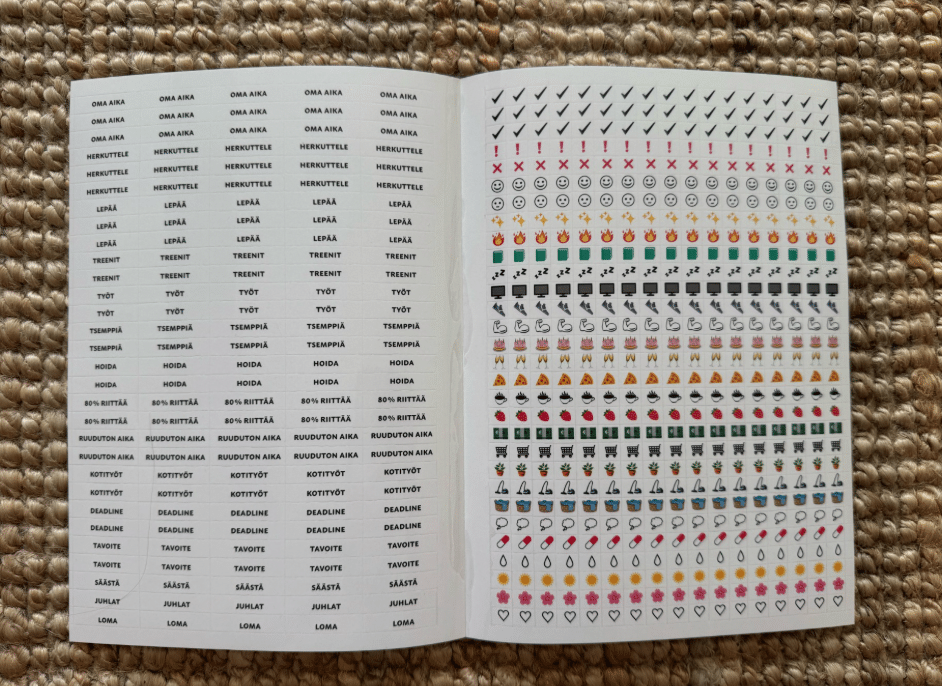 OMA AIKA OMA AIKA OMA AIKA OMA AIKA OMA AIKA
OMA AIKA OMA AIKA OMA AIKA OMA AIKA OMA AIKA
OMA AIKA OMA AIKA OMA AIKA OMA AIKA OMA AIKA
HERKUTTELE HERKUTTELE HERKUTTELE HERKUTTELE HERKUTTELE
HERKUTTELE HERKUTTELE HERKUTTELE HERKUTTELE HERKUTTELE
HERKUTTELE HERKUTTELE HERKUTTELE HERKUTTELE HERKUTTELE
LEPÄÄ LEPÄÄ LEPÄÄ LEPÄÄ LEPÄÄ
LEPÄÄ LEPÄÄ LEPÄÄ LEPÄÄ LEPÄÄ
LEPÄÄ LEPÄÄ LEPÄÄ LEPÄÄ LEPÄÄ
TREENIT TREENIT TREENIT TREENIT TREENIT
TREENIT TREENIT TREENIT TREENIT TREENIT
TYÖT TYÖT TYÖT TYÖT TYÖT
TYÖT TYÖT TYÖT TYÖT TYÖT
TSEMPPIÄ TSEMPPIÄ TSEMPPIÄ TSEMPPIÄ TSEMPPIÄ
TSEMPPIÄ TSEMPPIÄ TSEMPPIÄ TSEMPPIÄ TSEMPPIÄ
HOIDA HOIDA HOIDA HOIDA HOIDA
HOIDA HOIDA HOIDA HOIDA HOIDA
80% RIITTÄÄ 80% RIITTÄÄ 80% RIITTÄÄ 80% RIITTÄÄ 80% RIITTÄÄ
80% RIITTÄÄ 80% RIITTÄÄ 80% RIITTÄÄ 80% RIITTÄÄ 80% RIITTÄÄ
RUUDUTON AIKA RUUDUTON AIKA RUUDUTON AIKA RUUDUTON AIKA RUUDUTON AIKA
RUUDUTON AIKA RUUDUTON AIKA RUUDUTON AIKA RUUDUTON AIKA RUUDUTON AIKA
KOTITYÖT KOTITYÖT KOTITYÖT KOTITYÖT KOTITYÖT
KOTITYÖT KOTITYÖT KOTITYÖT KOTITYÖT KOTITYÖT
DEADLINE DEADLINE DEADLINE DEADLINE DEADLINE
DEADLINE DEADLINE DEADLINE DEADLINE DEADLINE
TAVOITE TAVOITE TAVOITE TAVOITE TAVOITE
TAVOITE TAVOITE TAVOITE TAVOITE TAVOITE
SÄÄSTÄ SÄÄSTÄ SÄÄSTÄ SÄÄSTÄ SÄÄSTÄ
JUHLAT JUHLAT JUHLAT JUHLAT JUHLAT
LOMA LOMA LOMA LOMA LOMA